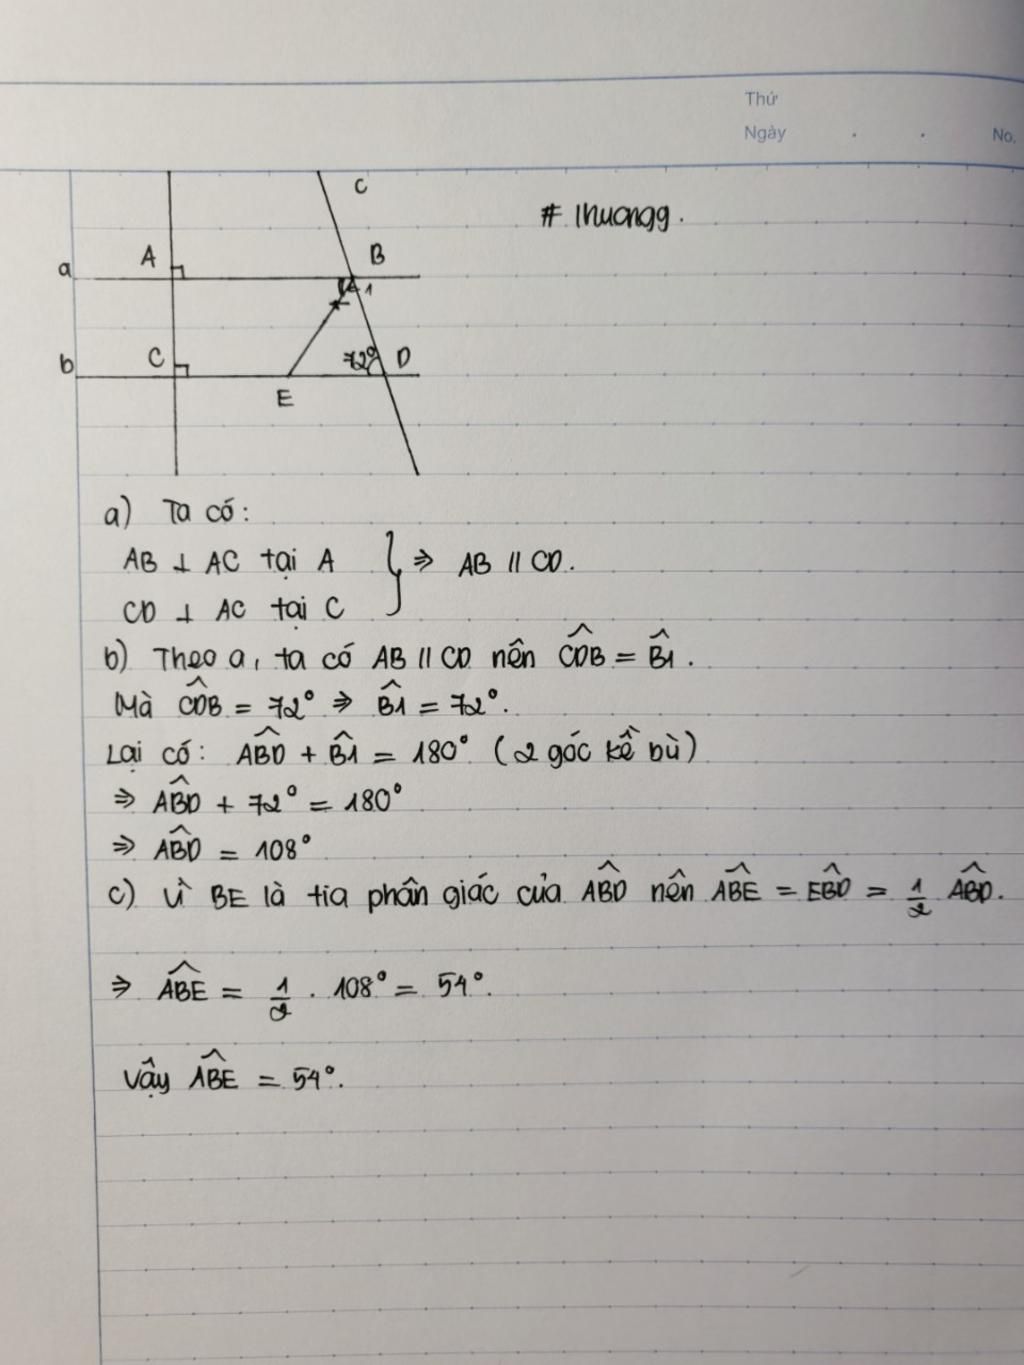 Thứ
Ngày . . No.
# Thuongg.
C
A B
a
1
b C 72° D
E
a) Ta có:
AB ⊥ AC tại A } ⇒ AB // CD.
CD ⊥ AC tại C
b) Theo a, ta có AB // CD nên \widehat{CDB} = \widehat{B1}.
Mà \widehat{CDB} = 72° ⇒ \widehat{B1} = 72°.
Lại có: \widehat{ABD} + \widehat{B1} = 180° (2 góc kề bù)
⇒ \widehat{ABD} + 72° = 180°
⇒ \widehat{ABD} = 108°
c) Vì BE là tia phân giác của \widehat{ABD} nên \widehat{ABE} = \widehat{EBD} = \frac{1}{2} \widehat{ABD}.
⇒ \widehat{ABE} = \frac{1}{2} . 108° = 54°.
Vậy \widehat{ABE} = 54°.